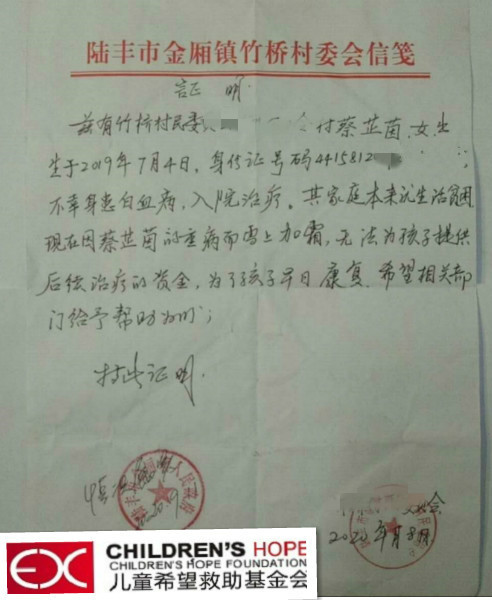 陆丰市金厢镇竹桥村委会信笺
证 明
兹有竹桥村民委 付蔡芷茵,女,生
生于2019年7月4日,身份证号码4415812
不幸身患白血病,入院治疗。其家庭本来就生活贫困
现在因蔡芷茵的重病而雪上加霜,无法为孩子提供
后续治疗的资金,为了孩子早日康复,希望相关部
门给予帮助为盼;
特此证明.
人民政府
CHILDREN'S HOPE
CHILDREN'S HOPE FOUNDATION
儿童希望救助基金会